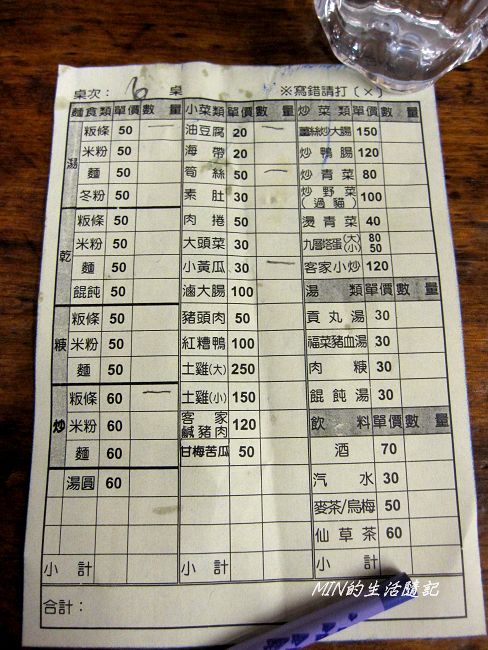 桌次： 6 桌 ※寫錯請打（×）
麵食類 單價 數量 小菜類 單價 數量 炒菜類 單價 數量
湯 粄條 50 一 油豆腐 20 一 薑絲炒大腸 150
米粉 50 海帶 20 炒鴨腸 120
麵 50 筍絲 50 一 炒青菜 80
冬粉 50 素肚 30 炒野菜（過貓） 100
乾 粄條 50 肉捲 50 燙青菜 40
米粉 50 大頭菜 30 九層塔蛋(大) 80 (小) 50
麵 50 小黃瓜 30 一 客家小炒 120
餛飩 50 滷大腸 100 湯類 單價 數量
粳 粄條 50 豬頭肉 50 貢丸湯 30
米粉 50 紅糟鴨 100 福菜豬血湯 30
麵 50 土雞(大) 250 肉粳 30
炒 粄條 60 一 土雞(小) 150 餛飩湯 30
米粉 60 客家鹹豬肉 120 飲料 單價 數量
麵 60 甘梅苦瓜 50 酒 70
湯圓 60 汽水 30
麥茶/烏梅 50
仙草茶 60
小計 小計 小計
合計：
MIN的生活隨記